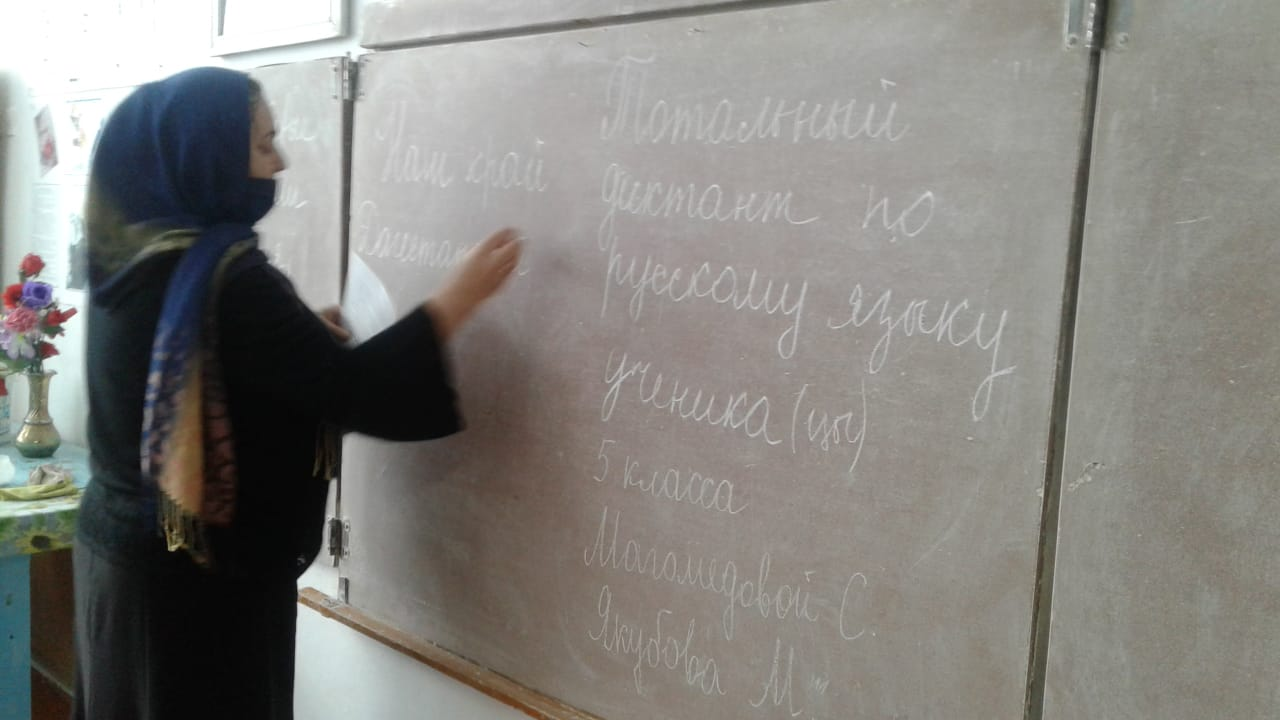 Наш край
Дагестан
Тотальный
диктант по
русскому языку
ученика (цы)
5 класса
Магомедовой С.
Якубова М